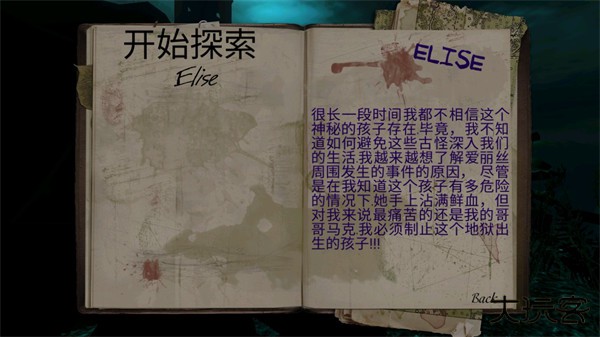 开始探索
Elise
ELISE
很长一段时间我都不相信这个
神秘的孩子存在.毕竟，我不知
道如何避免这些古怪深入我们
的生活.我越来越想了解爱丽丝
周围发生的事件的原因， 尽管
是在我知道这个孩子有多危险
的情况下.她手上沾满鲜血，但
对我来说最痛苦的还是我的哥
哥马克.我必须制止这个地狱出
生的孩子!!!
Back
大玩客